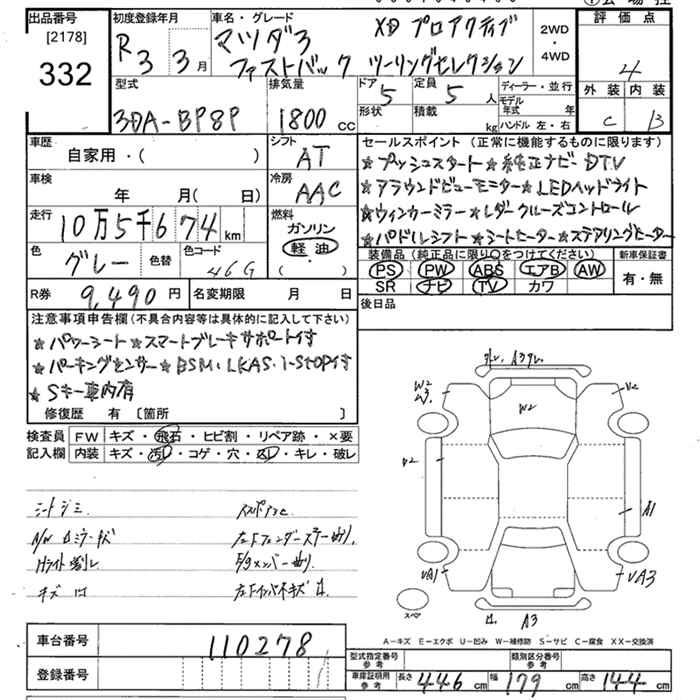 出品番号
[2178]
332
初度登録年月
R3 3月
車名・グレード
マツダ3 XD プロアクティブ
ファストバック ツーリングセレクション
2WD
・
4WD
評価点
4
外装 内装
C B
型式
3DA-BP8P
排気量
1800 CC
ドア 5
形状
定員 5 人
積載 kg
ディーラー・並行
モデル
年式 年
ハンドル 左・右
車歴
自家用・( )
車検
年 月( 日)
走行
10万5千674 km
色
グレー 色替
色コード
46G
シフト
AT
冷房
AAC
燃料
ガソリン
軽油
( ・ )
セールスポイント (正常に機能するものに限ります)
★プッシュスタート★純正ナビ DTV
★アラウンドビューモニター★LEDヘッドライト
★ウィンカーミラー★レダークルーズコントロール
★パドルシフト★シートヒーター★ステアリングヒーター
装備品 (純正品に限り○をつけてください)
PS PW ABS エアB AW
SR ナビ TV カワ
新車保証書
有・無
R券 9,490 円
名変期限 月 日
後日品
注意事項申告欄 (不具合内容等は具体的に記入して下さい)
★パワーシート★スマートブレーキサポート付
★パーキングセンサー★BSM・LKAS・i-STOP付
★Sキー車内有
修復歴 有 〔箇所 〕
検査員
記入欄
FW キズ・飛石・ヒビ割・リペア跡・×要
内装 キズ・汚レ・コゲ・穴・凶レ・キレ・破レ
シートジミ
キズ
W2
W3
A3
V2
W2
V2
A1
VA1
VA3
A3
スペア
A-キズ E-エクボ U-凹み W-補修跡 S-サビ C-腐食 XX-交換済
車台番号 110278
登録番号
型式指定番号
参考
類別区分番号
参考
車庫証明用
参考
長さ 446 cm 幅 179 cm 高さ 144 cm